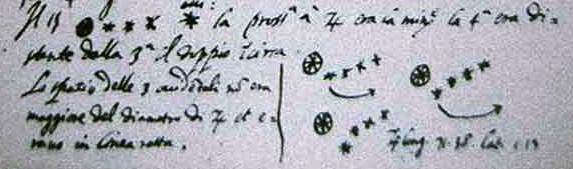 Il 13 la pross.a à ♃ era la min.e la 4.a era di=
stante dalla 3.a il doppio Circa
Lo spatio delle 3 occidentali nō era
maggiore del diametro di ♃ et e=
rano in linea retta.
♃ long. 71.38 Lat. 1.13